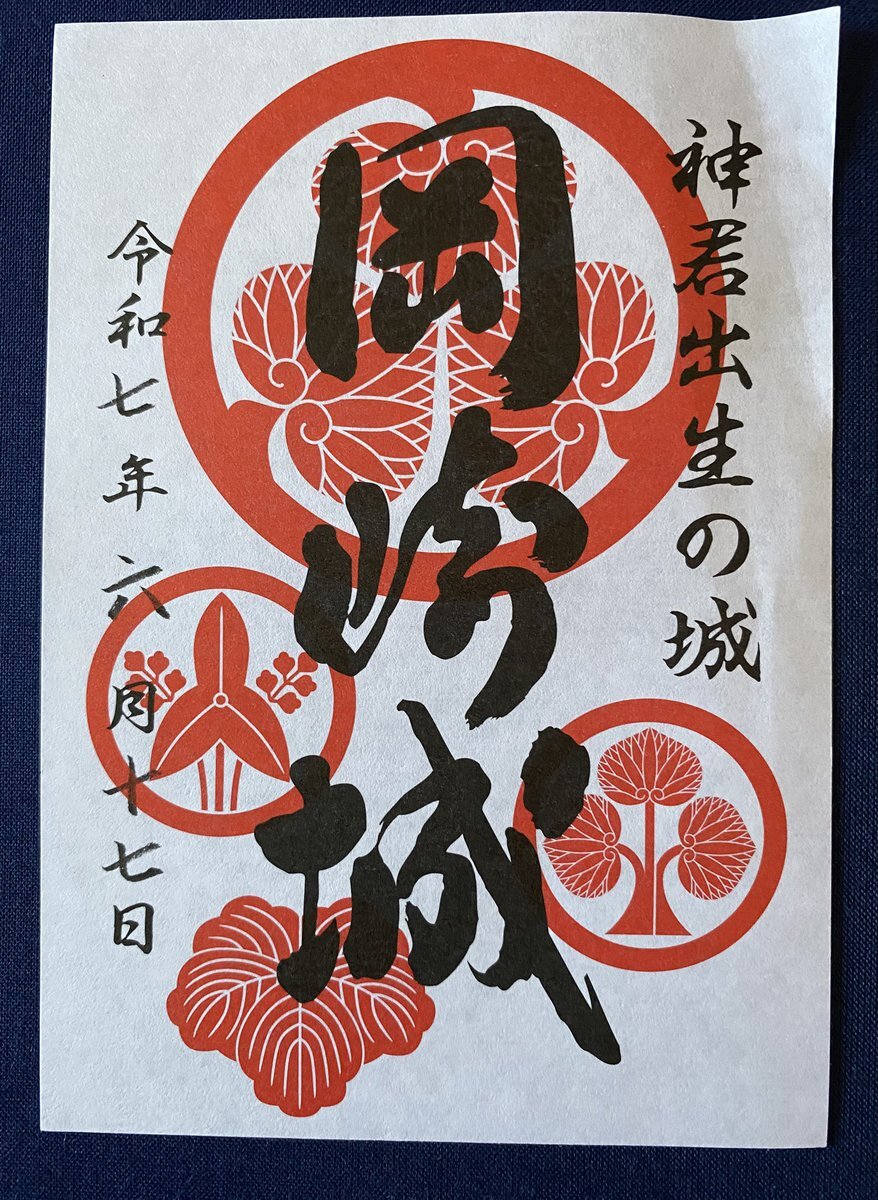 神君出生の城
岡崎城
令和七年六月十七日